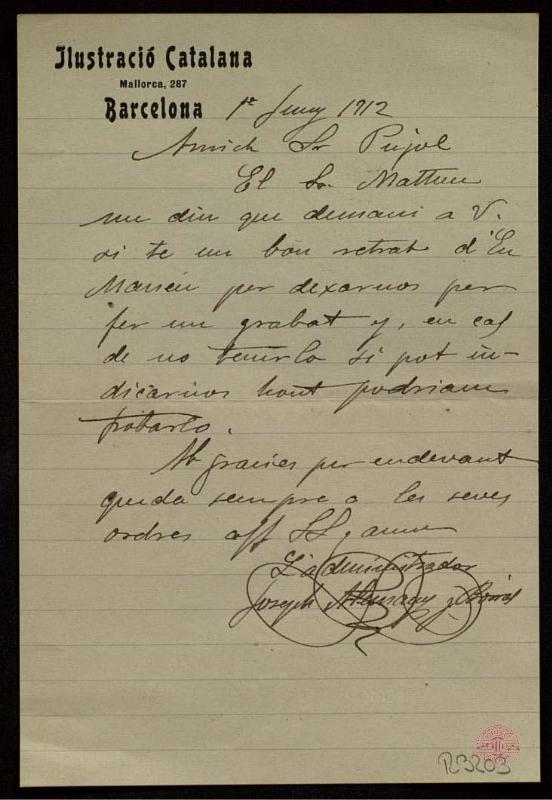 Ilustració Catalana
Mallorca, 287
Barcelona 1er Juny 1912
Amich Sr Pujol
El Sr. Matheu
me diu que demani a V.
si te un bon retrat d'En
Manén per dexarnos per
fer un grabat y, en cas
de no tenirlo si pot in-
dicarnos hont podriam
trobarlo.
Ab gracies per endevant
queda sempre a les seves
ordres aff SS y amm
L'administrador
Joseph y Borrás
R3203